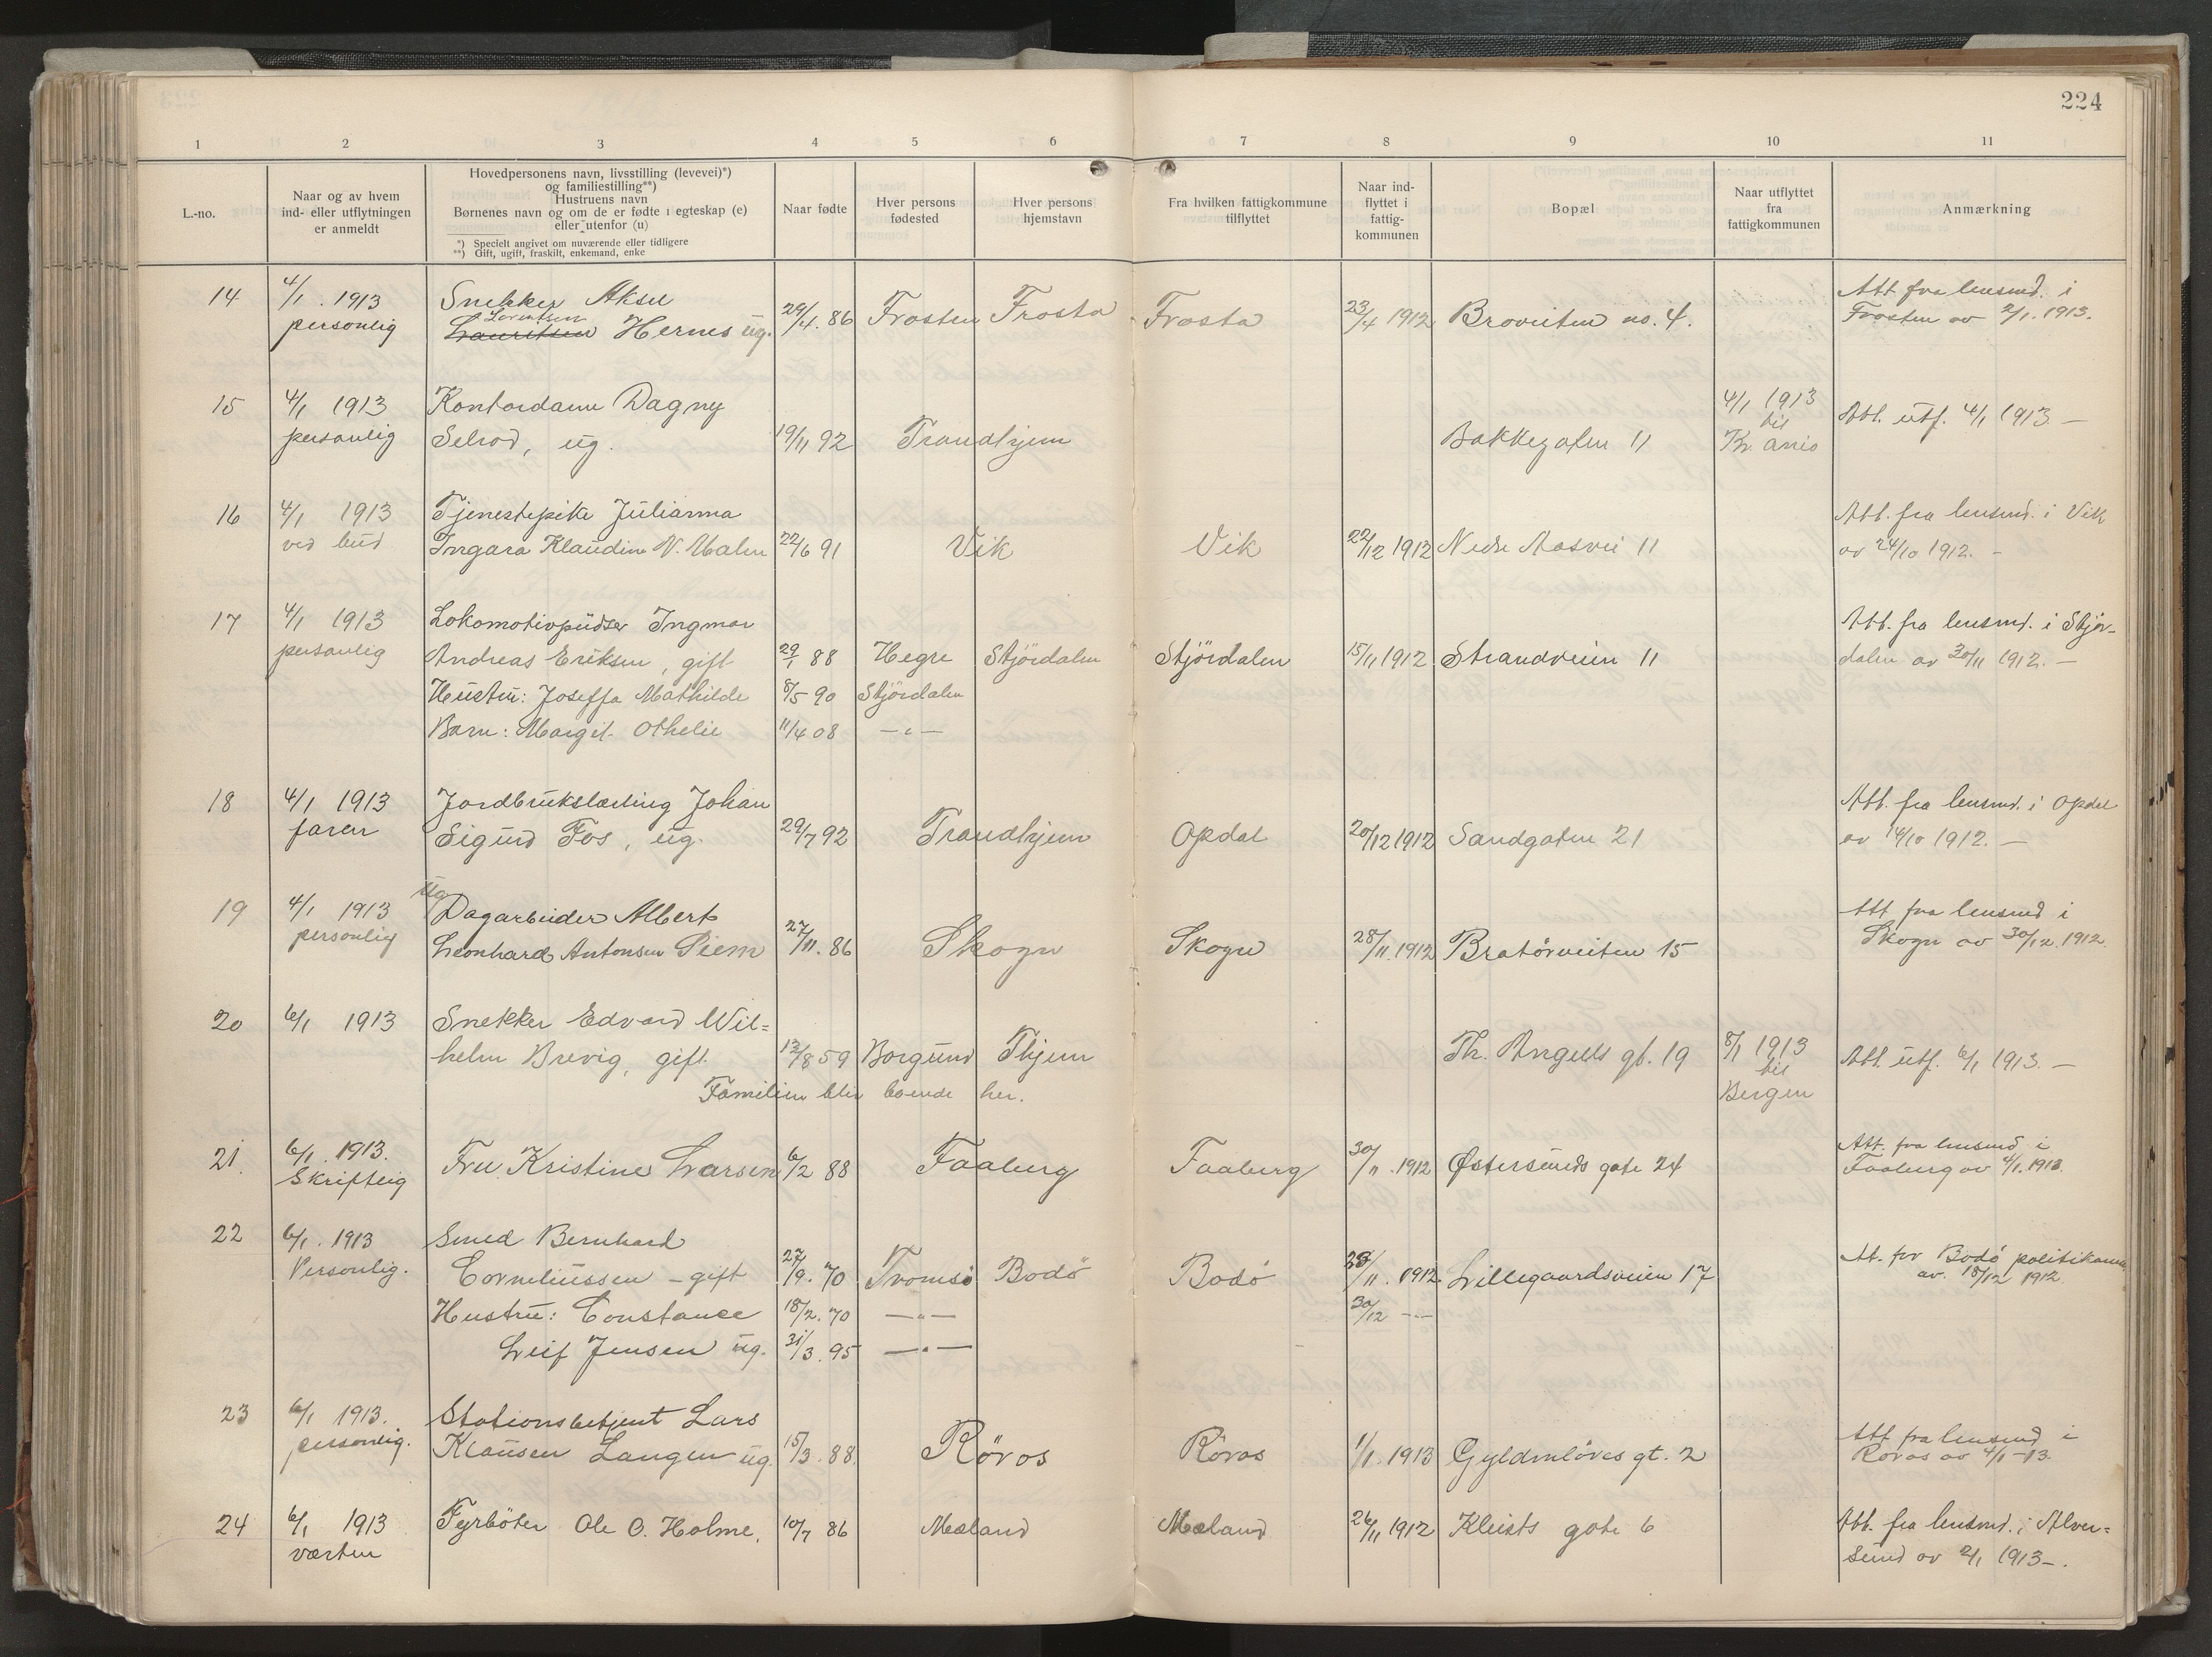 224
1 2 3 4 5 6 7 8 9 10 11
L.-no.
Naar og av hvem
ind- eller utflytningen
er anmeldt
Hovedpersonens navn, livsstilling (levevei)*)
og familiestilling**)
Hustruens navn
Børnenes navn og om de er fødte i egteskap (e)
eller utenfor (u)
*) Specielt angivet om nuværende eller tidligere
**) Gift, ugift, fraskilt, enkemand, enke
Naar fødte
Hver persons
fødested
Hver persons
hjemstavn
Fra hvilken fattigkommune
tilflyttet
Naar ind-
flyttet i
fattig-
kommunen
Bopæl
Naar utflyttet
fra
fattigkommunen
Anmærkning
14 4/1. 1913 Snekker Aksel Att. fra lensmd. i
personlig Lorentsen
Lauritsen Hernes ug. 29/4. 86 Frosten Frosta Frosta 23/4 1912 Broveiten no. 4. Frosten av 2/1. 1913.
15 4/1 1913 Kontordame Dagny 4/1 1913
personlig Selrod, ug. 19/11 92 Trondhjem Bakkegaten 11 til Kr.ania Att. utf. 4/1 1913 —
16 4/1 1913 Tjenestepike Julianna Att. fra lensmd. i Vik
ved bud Ingara Klaudine N. Malm 22/6 91 Vik Vik 22/12 1912 Nedre Aasvei 11 av 24/10 1912. -
17 4/1 1913 Lokomotivpudser Ingmar Att. fra lensmd. i Stjør-
personlig Andreas Eriksen, gift 29/1 88 Hegre Stjördalen Stjördalen 15/11 1912 Strandveien 11 dalen av 30/11 1912. —
Hustru: Joseffa Mathilde 8/5 90 Stjördalen
Barn: Margit Othelie 11/4 08 — " —
18 4/1 1913 Jordbrukslærling Johan Att. fra lensmd. i Opdal
faren Sigurd Fos, ug. 29/7 92 Trondhjem Opdal 20/12 1912 Sandgaten 21 av 14/10 1912. —
ug
19 4/1 1913 Dagarbeider Albert Att fra lensmd i
personlig Leonhard Antonsen Siem 27/11. 86 Skogn Skogn 28/11. 1912 Bratørveiten 15 Skogn av 30/12. 1912.
20 6/1 1913 Snekker Edvard Wil=
helm Brevig, gift. 13/8 59 Borgund Thjem Th. Angells gt. 19 8/1 1913 til Bergen Att. utf. 6/1 1913. —
Familien blir boende her.
21 6/1. 1913. Att. fra lensmd i
Skriftlig Fru Kristine Larsen 6/2 88 Faaberg Faaberg 30/11. 1912 Østersunds gate 24 Faaberg av 4/1. 1913.
22 6/1. 1913 Smed Bernhard
Personlig. Corneliussen - gift 27/9. 70 Tromsö Bodö Bodö 1912 Lillegaardsveien 17 At. fr Bodö politikam
av 18/12 1912.
Hustru: Constance 18/2. 70 — " — 30/12 — "—
Leif Jensen ug. 31/3. 95 — " —
23 6/1 1913. Stationsbetjent Lars Att. fra lensmd i
personlig. Klausen Langen ug. 15/3. 88. Röros Röros 1/1. 1913 Gyldenløves gt. 2 Röros av 4/1 -13.
24 6/1 1913 Fyrböter Ole O. Holme. 10/7 86 Mæland Mæland 26/11 1912 Kleists gate 6 Att. fra lensmd. i Alver=
værten sund av 2/1 1913 -.